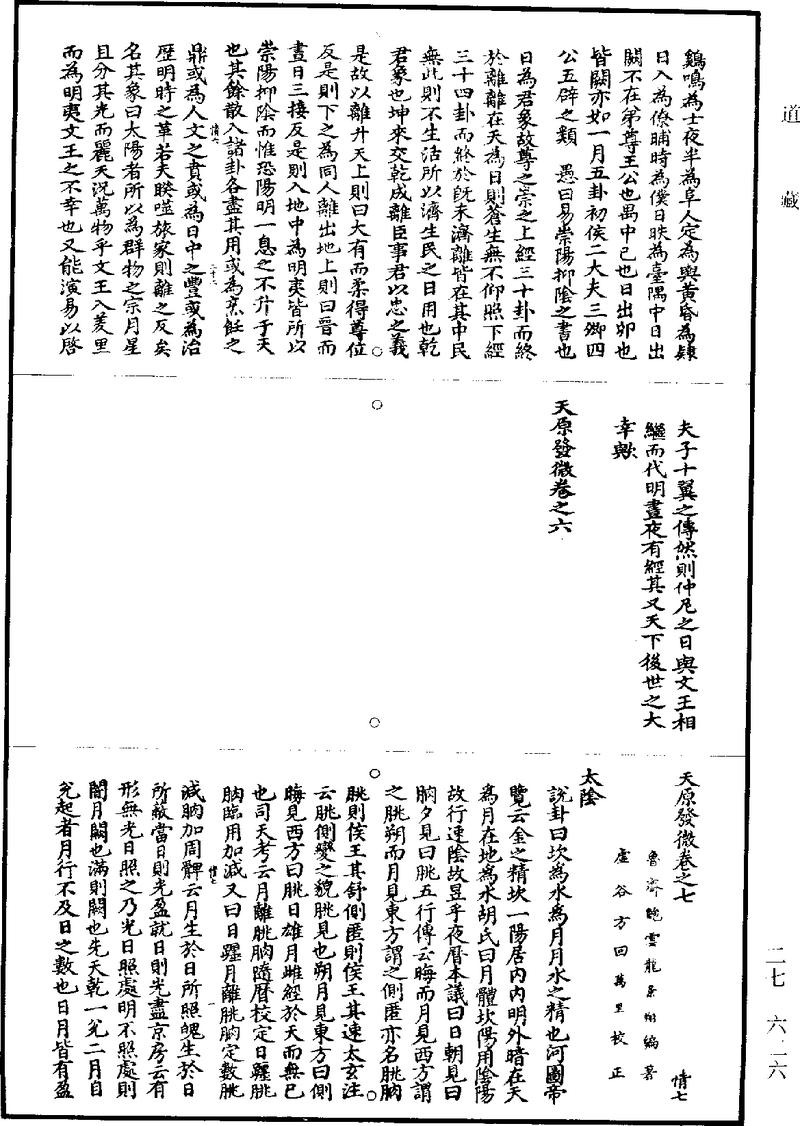 道藏
鷄鳴為士夜半為阜人定為輿黄昏為隸
日入為僚晡時為僕日昳為臺隅中日出
闕不在第尊王公也禺中巳也日出卯也
皆闕亦如一月五卦初侯二大夫三卿四
公五辟之類　愚曰易崇陽抑陰之書也
日為君象故尊之崇之上經三十卦而終
於離離在天為日則蒼生無不仰照下經
三十四卦而終於既未濟離皆在其中民
無此則不生活所以濟生民之日用也乾
君象也坤來交乾成離臣事君以忠之義
是故以離升天上則曰大有而柔得尊位
反是則下之為同人離出地上則曰晉而
晝日三接反是則入地中為明夷皆所以
崇陽抑陰而惟恐陽明一息之不升于天
也其餘散入諸卦各盡其用或為烹飪之
情六
二十六
鼎或為人文之賁或為日中之豐或為治
歴明時之革若夫睽噬旅家則離之反矣
名其象曰太陽者所以為群物之宗月星
且分其光而麗天況萬物乎文王入羑里
而為明夷文王之不幸也又能演易以啓
夫子十翼之傳然則仲尼之日與文王相
繼而代明晝夜有經其又天下後世之大
幸歟
天原發微卷之六
天原發微卷之七
情七
魯齋鮑雲龍景翔編著
虛谷方回萬里校正
太陰
說卦曰坎為水為月月水之精也河圖帝
覽云金之精坎一陽居内内明外暗在天
為月在地為水胡氏曰月體坎陽用陰陽
故行速陰故昱乎夜曆本議曰日朝見曰
朒夕見曰朓五行傳云晦而月見西方謂
之朓朔而月見東方謂之側匿亦名朓朒
朓則侯王其舒側匿則侯王其速太玄注
云朓側變之貌朓見也朔月見東方曰側
晦見西方曰朓日雄月雌經於天而無已
也司天考云月離朓朒隨曆校定日躔朓
朒臨用加減又曰日躔月離朓朒定數朓
情七
一
減朒加周髀云月生於日所照魄生於日
所蔽當日則光盈就日則光盡京房云有
形無光日照之乃光日照處明不照處則
闇月闕也滿則闕也先天乾一兊二月自
兊起者月行不及日之數也日月皆有盈
二七　六二六